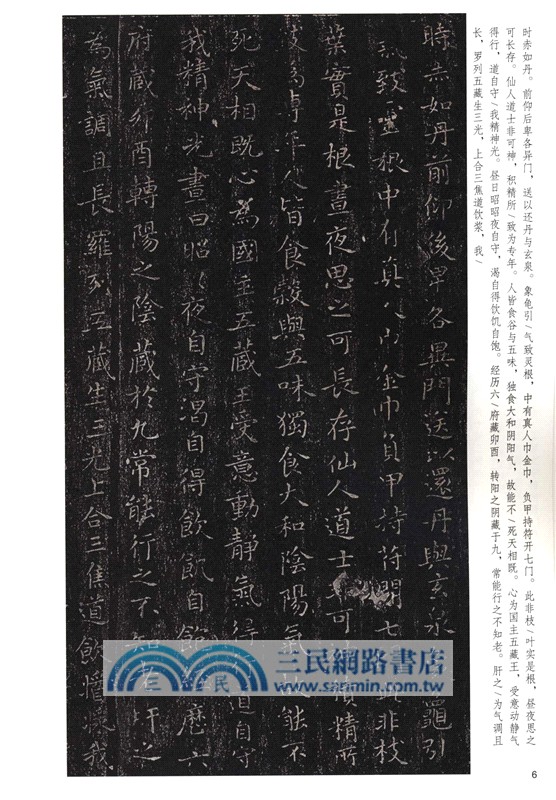 时赤如丹。前仰后卑各异门，送以还丹与玄泉。象龟引\气致灵根，中有真人巾金巾，负甲持符开七门。此非枝\叶实是根，昼夜思之
可长存。仙人道士非可神，积精所\致为专年。人皆食谷与五味，独食大和阴阳气，故能不\死天相既。心为国主五藏王，受意动静气
得行，道自守\我精神光。昼日昭昭夜自守，渴自得饮饥自饱。经历六\府藏卯酉，转阳之阴藏于九，常能行之不知老。肝之\为气调且
长，罗列五藏生三光，上合三焦道饮浆，我\
時赤如丹前仰後卑各異門送以還丹與玄龜引
氣致靈根中有真人巾金巾負甲持符開七非枝
葉實是根晝夜思之可長存仙人道士可積精所
致為專年人皆食穀與五味獨食大和陰陽氣故能不
死天相既心為國主五藏王受意動靜氣行道自守
我精神光晝日昭〻夜自守渴自得飲飢自飽經歷六
府藏卯酉轉陽之陰藏於九常能行之不知老肝之
為氣調且長羅列五藏生三光上合三焦道飲漿我
三民網路書店
6